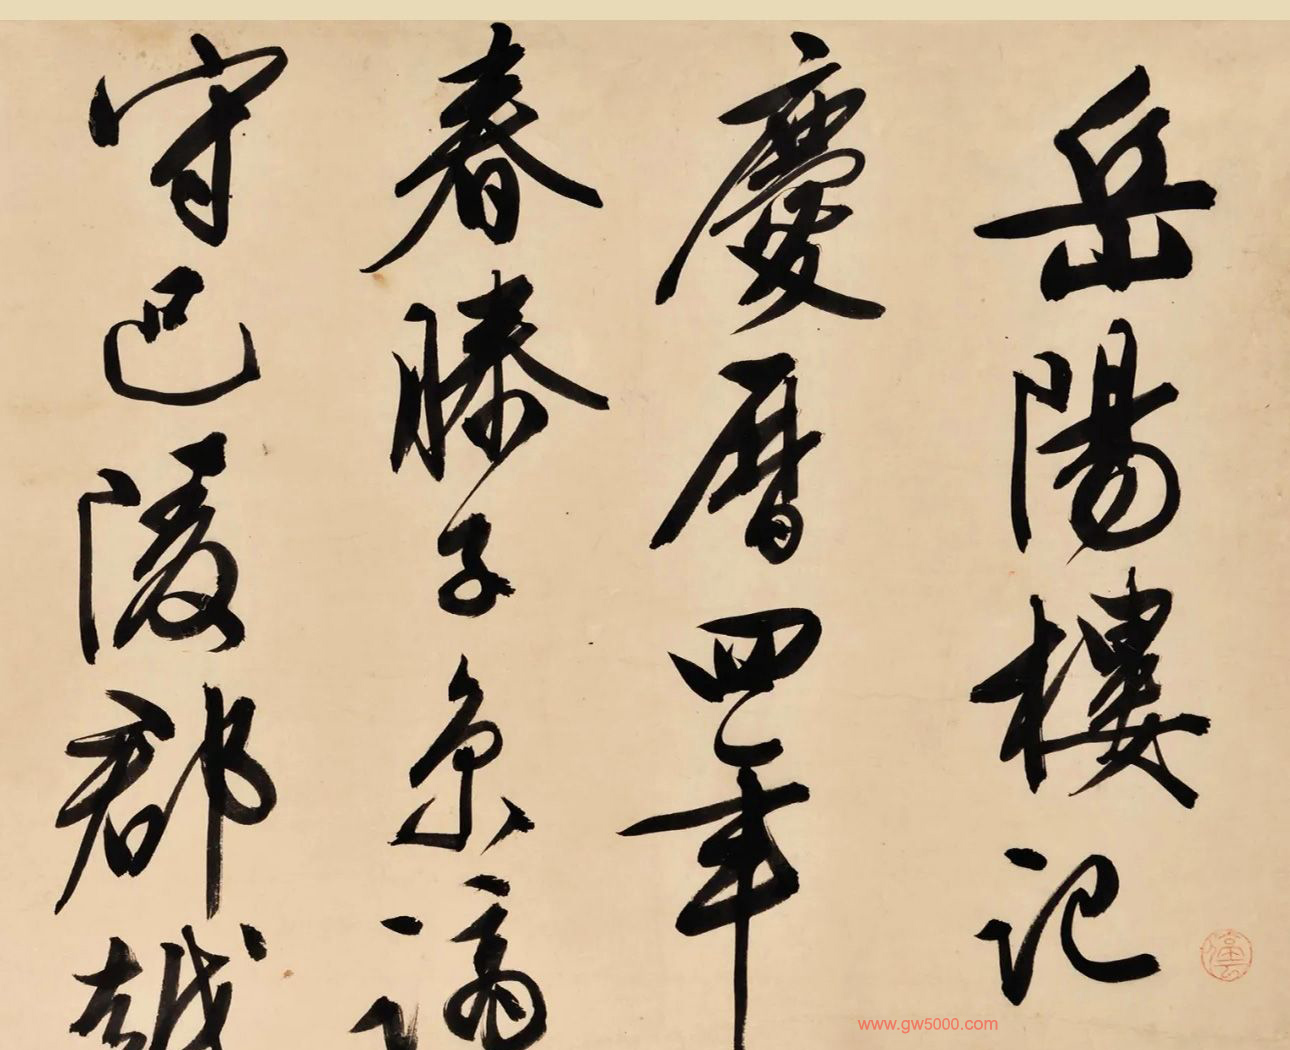 岳陽樓記
慶曆四年
春滕子京謫
守巴陵郡越
www.gw5000.com